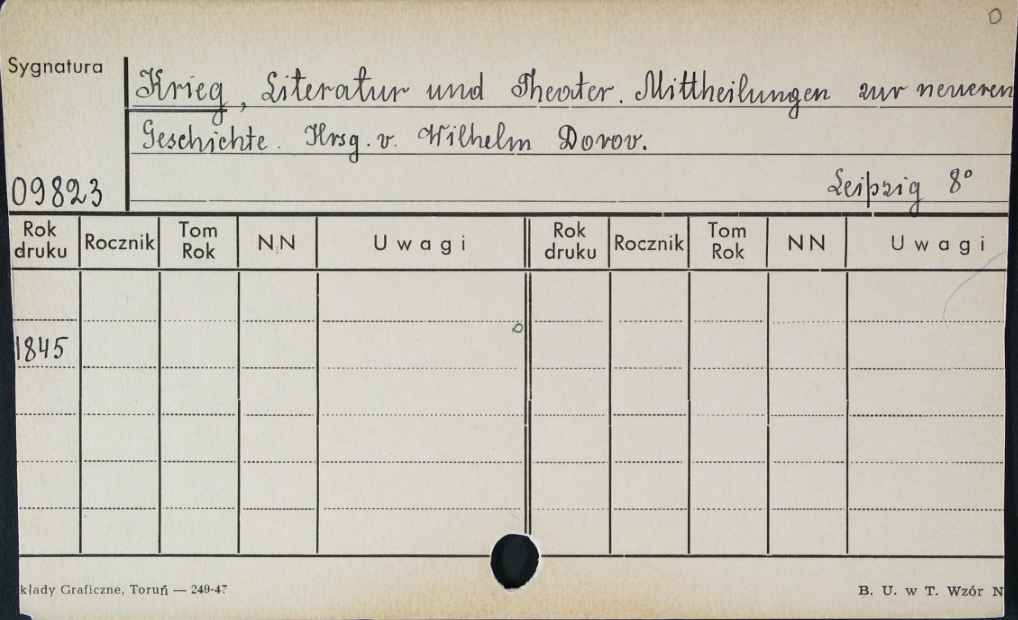 Sygnatura
Krieg, Literatur und Theater. Mittheilungen zur neueren
Geschichte. Hrsg. v. Wilhelm Dorov.
09823
Leipzig 8°
Rok druku Rocznik Tom Rok NN Uwagi Rok druku Rocznik Tom Rok NN Uwagi
1845
kłady Graficzne, Toruń — 249-47 B. U. w T. Wzór N